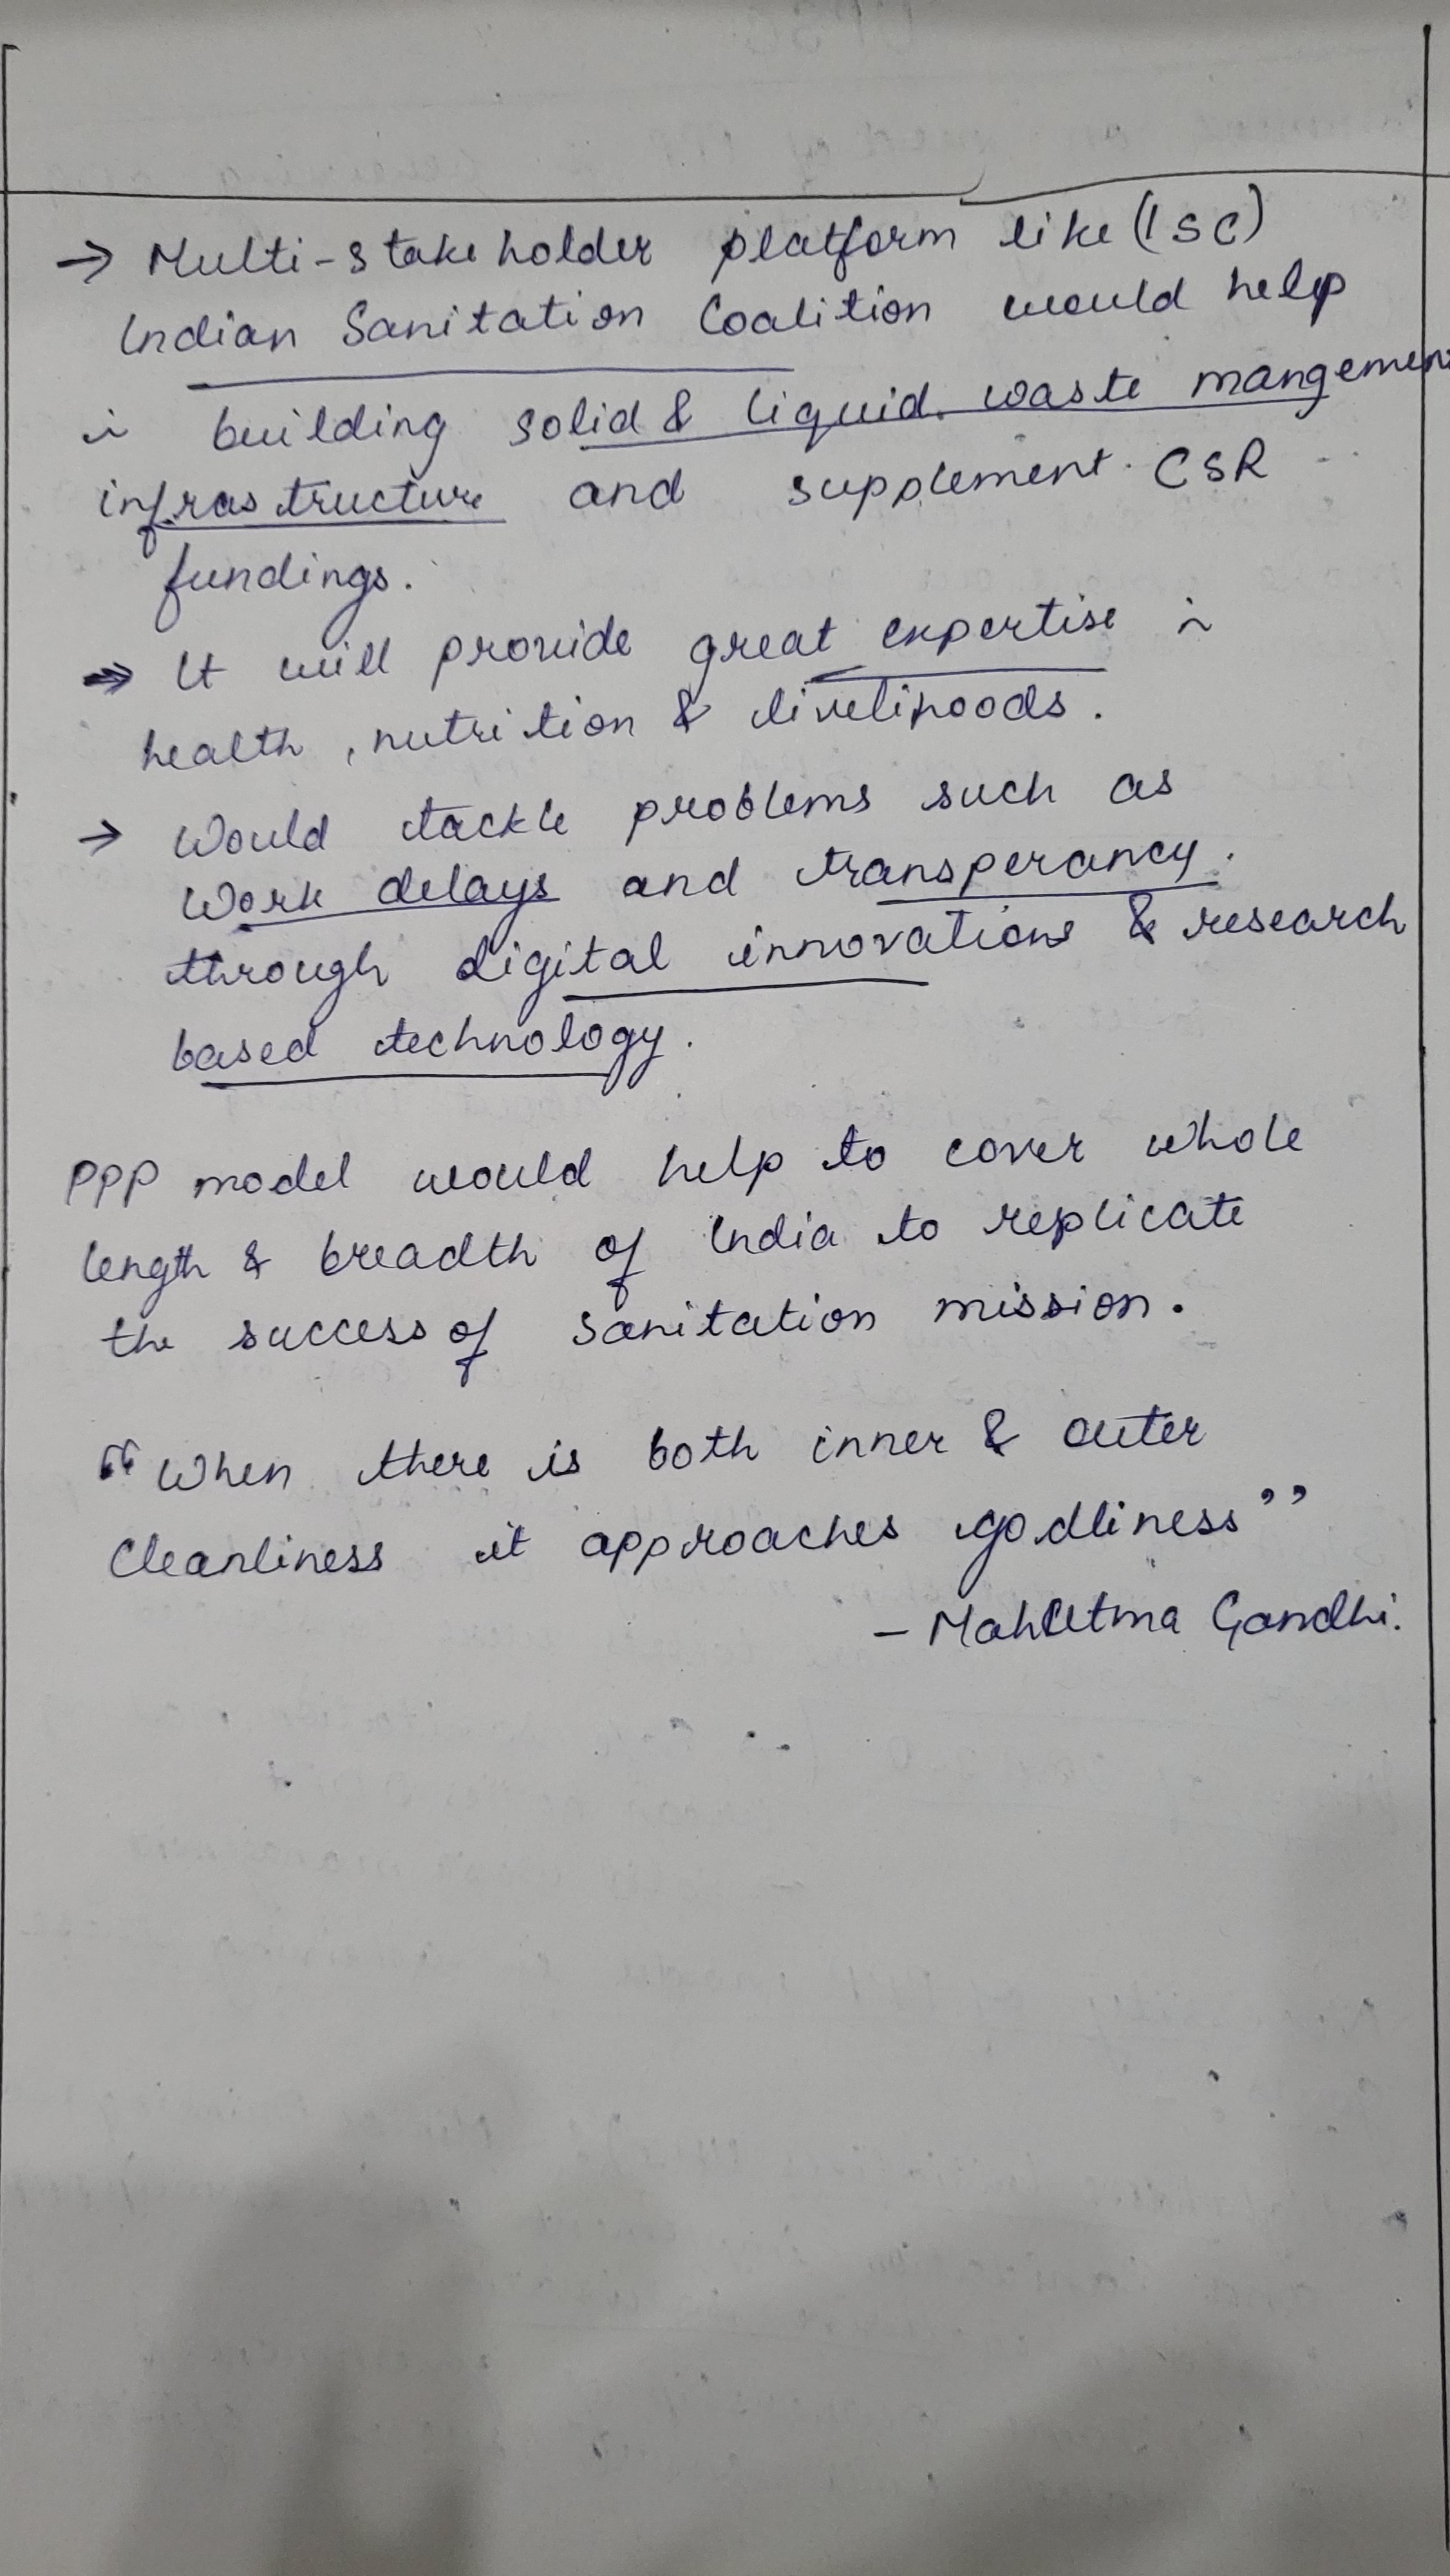 → Multi-stakeholder platform like (ISC)
Indian Sanitation Coalition would help
in building solid & liquid waste mangement
infrastructure and supplement CSR
fundings.
→ It will provide great expertise in
health, nutrition & livelihoods.
→ Would tackle problems such as
work delays and transperancy.
through digital innovations & research
based technology.
PPP model would help to cover whole
length & breadth of India to replicate
the success of sanitation mission.
"When there is both inner & outer
Cleanliness it approaches godliness"
- Mahatma Gandhi.